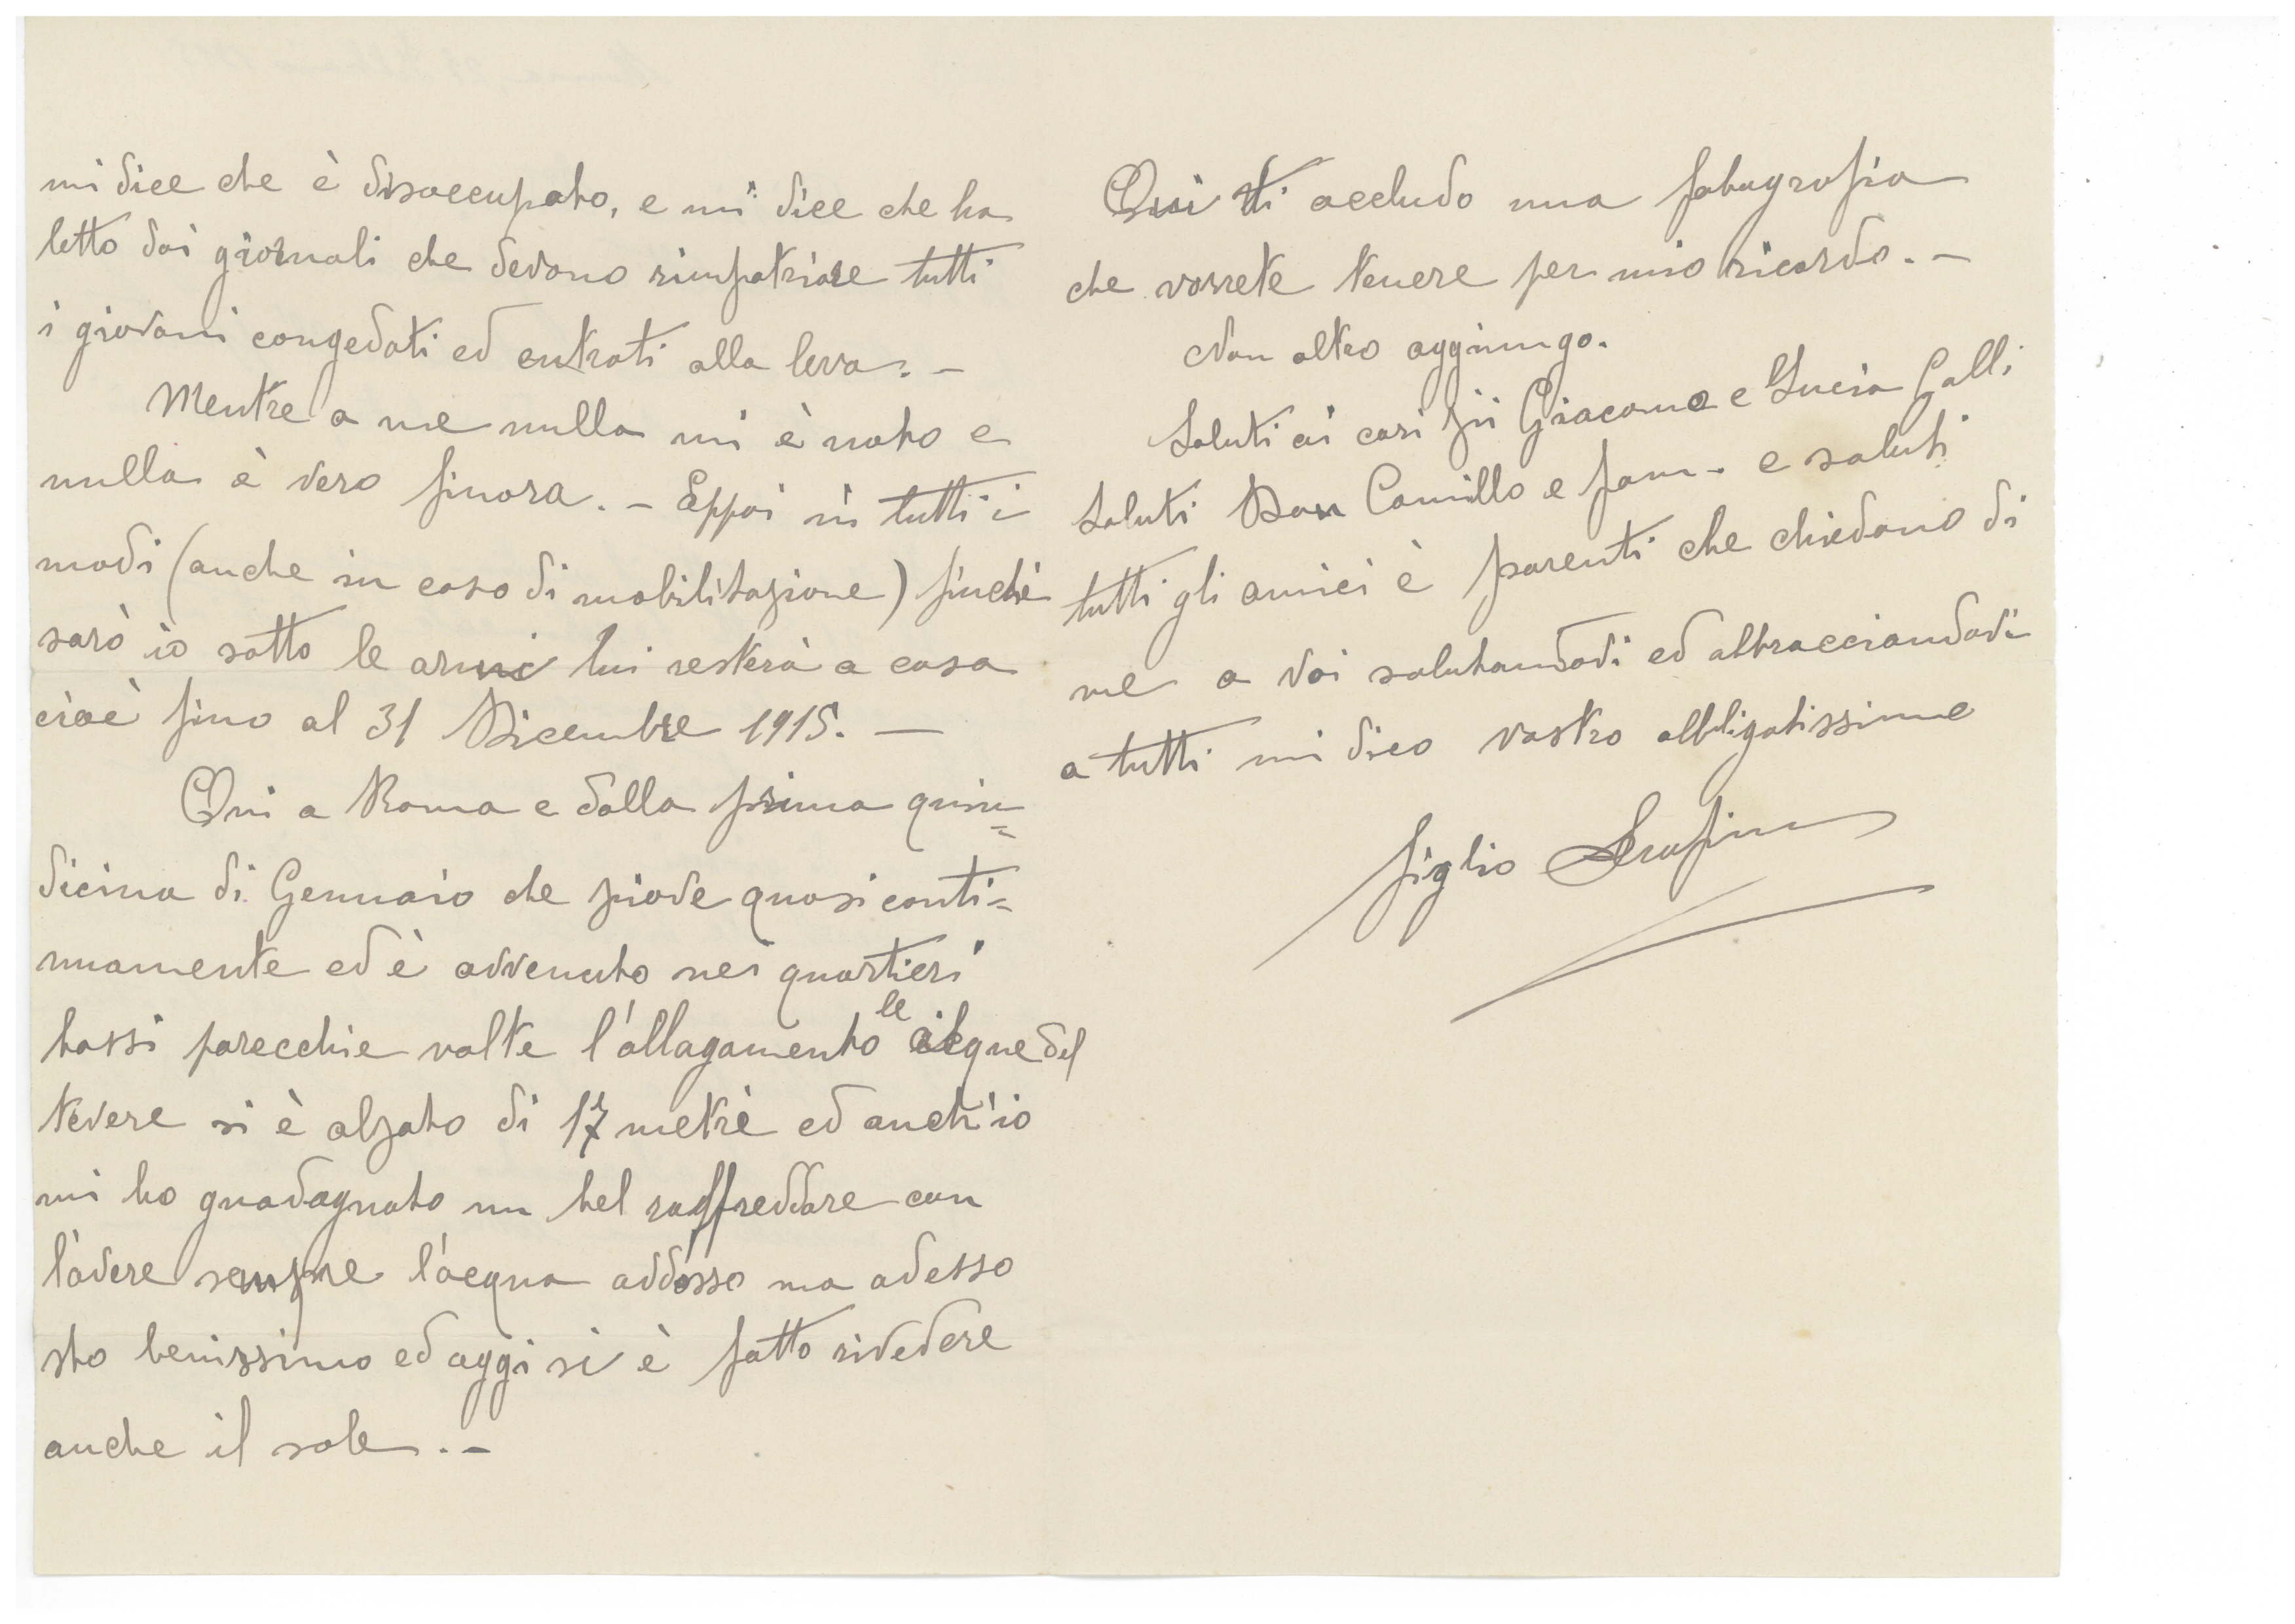 mi dice che è disoccupato, e mi dice che ha
letto dai giornali che devono rimpatriare tutti
i giovani congedati ed entrati alla leva. -
Mentre a me nulla mi è noto e
nulla è vero finora. - Eppoi in tutti i
modi (anche in caso di mobilitazione) finchè
sarò io sotto le armi lui resterà a casa
cioè fino al 31 Dicembre 1915. -
Qui a Roma e dalla prima quin=
dicina di Gennaio che piove quasi conti=
nuamente ed è avvenuto nei quartieri
bassi parecchie volte l'allagamento le acque del
tevere si è alzato di 17 metri ed anch'io
mi ho guadagnato un bel raffreddore con
l'avere sempre l'acqua addosso ma adesso
sto benissimo ed oggi si è fatto rivedere
anche il sole. -
Qui ti accludo una fotografia
che vorrete tenere per mio ricordo. -
Non altro aggiungo.
Saluti ai cari zii Giacomo e Lucia Galli
Saluti Don Camillo e fam. e saluti
tutti gli amici è parenti che chiedono di
me a voi salutandovi ed abbracciandovi
a tutti mi dico vostro obbligatissimo
figlio Serafino